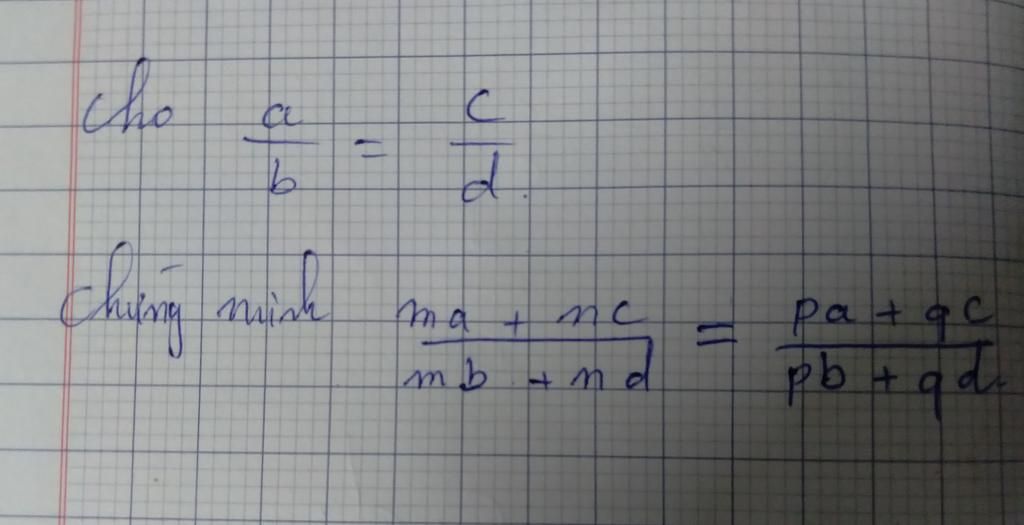 Cho a/b = c/d.
Chứng minh ma + nc / mb + nd = pa + qc / pb + qd.